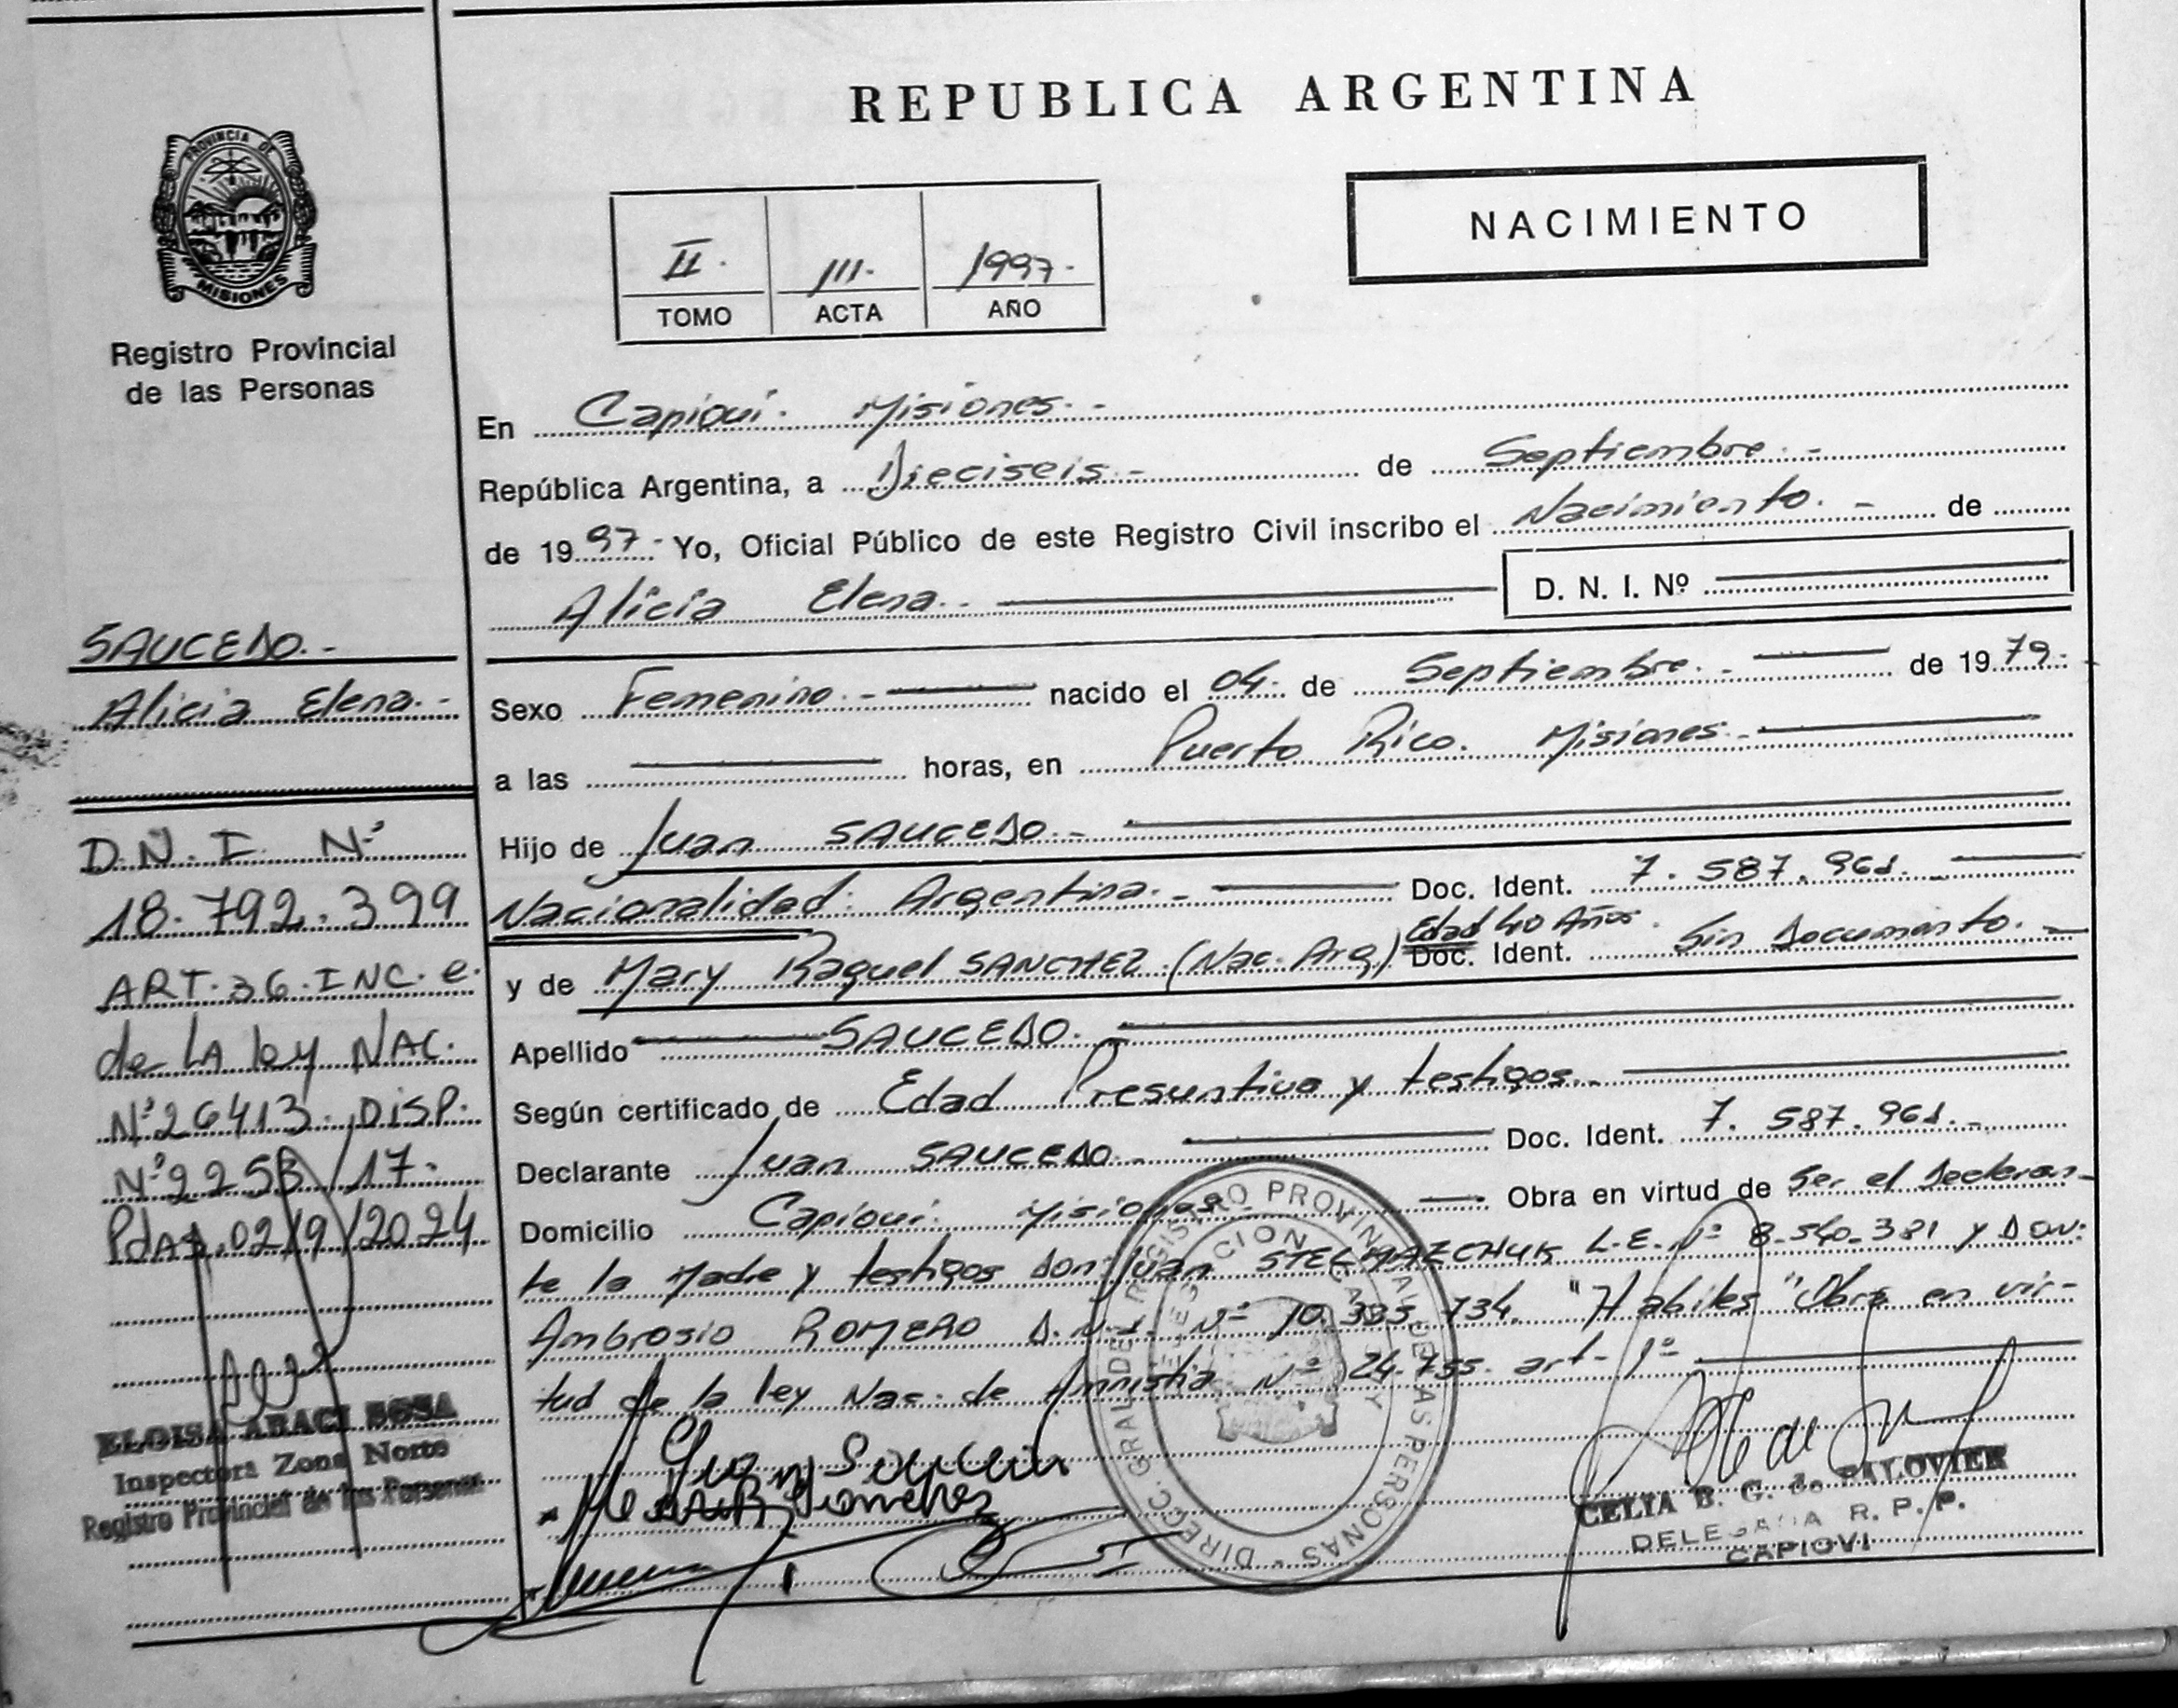 REPUBLICA ARGENTINA
PROVINCIA DE
MISIONES
Registro Provincial
de las Personas
NACIMIENTO
II.
TOMO
111.
ACTA
1997.
AÑO
En Capiouí. Misiones. -
República Argentina, a Dieciseis. - de Septiembre. -
de 1997.- Yo, Oficial Público de este Registro Civil inscribo el Nacimiento. - de
Alicia Elena. - D. N. I. Nº
SAUCEDO. -
Alicia Elena. -
Sexo Femenino. - nacido el 04. de Septiembre. - de 1979.
a las horas, en Puerto Rico. Misiones. -
Hijo de Juan SAUCEDO. -
Nacionalidad: Argentina. - Doc. Ident. 7.587.961. -
Edad 40 Años.
y de Mary Raquel SANCHEZ. (Nac. Arg.) Doc. Ident. Sin Documento. -
Apellido SAUCEDO. -
Según certificado de Edad Presuntiva y testigos. -
Declarante Juan SAUCEDO. - Doc. Ident. 7.587.961. -
Domicilio Capiouí. Misiones. - Obra en virtud de Ser el Declaran-
te la Madre y testigos Don: Juan STELMAZCHUK L.E. Nº 8.540.381 y DON:
Ambrosio ROMERO D.N.I. Nº 10.335.734. "Habiles" Obra en vir-
tud de la ley Nac. de Amnistia Nº 24.755. art- 1º
D.N.I. Nº
18.792.399
ART.36.INC.e.
de LA ley NAC.
Nº26413. DISP.
Nº2253/17.
Pdas.02/9/2024
ELOISA ARACI SOSA
Inspectora Zona Norte
Registro Provincial de las Personas
DIREC. GRAL DEL REGISTRO PROVINCIAL DE LAS PERSONAS
CELIA B. G. de
DELEGADA R. P. P.
CAPIOVI